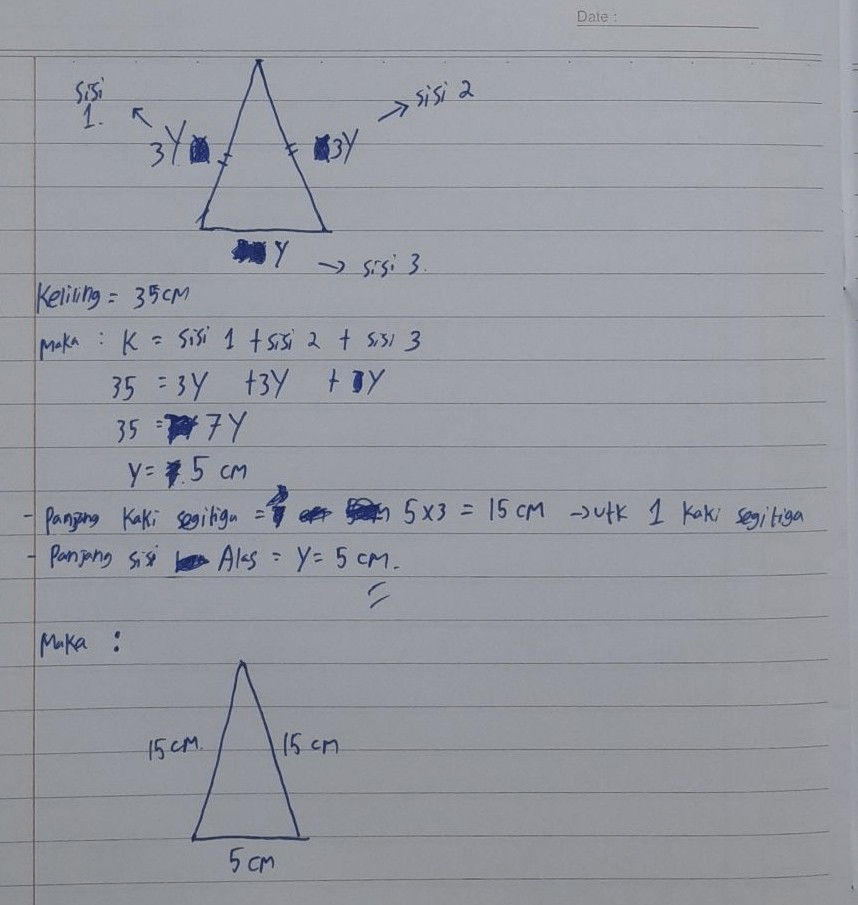 Date :
sisi
1.
sisi 2
3Y
3Y
Y → sisi 3.
Keliling = 35 cm
Maka : K = sisi 1 + sisi 2 + sisi 3
35 = 3Y + 3Y + Y
35 = 7Y
Y = 5 cm
- Panjang kaki segitiga = 5 x 3 = 15 cm → utk 1 kaki segitiga
- Panjang sisi Alas = Y = 5 cm.
Maka :
15 cm.
15 cm
5 cm